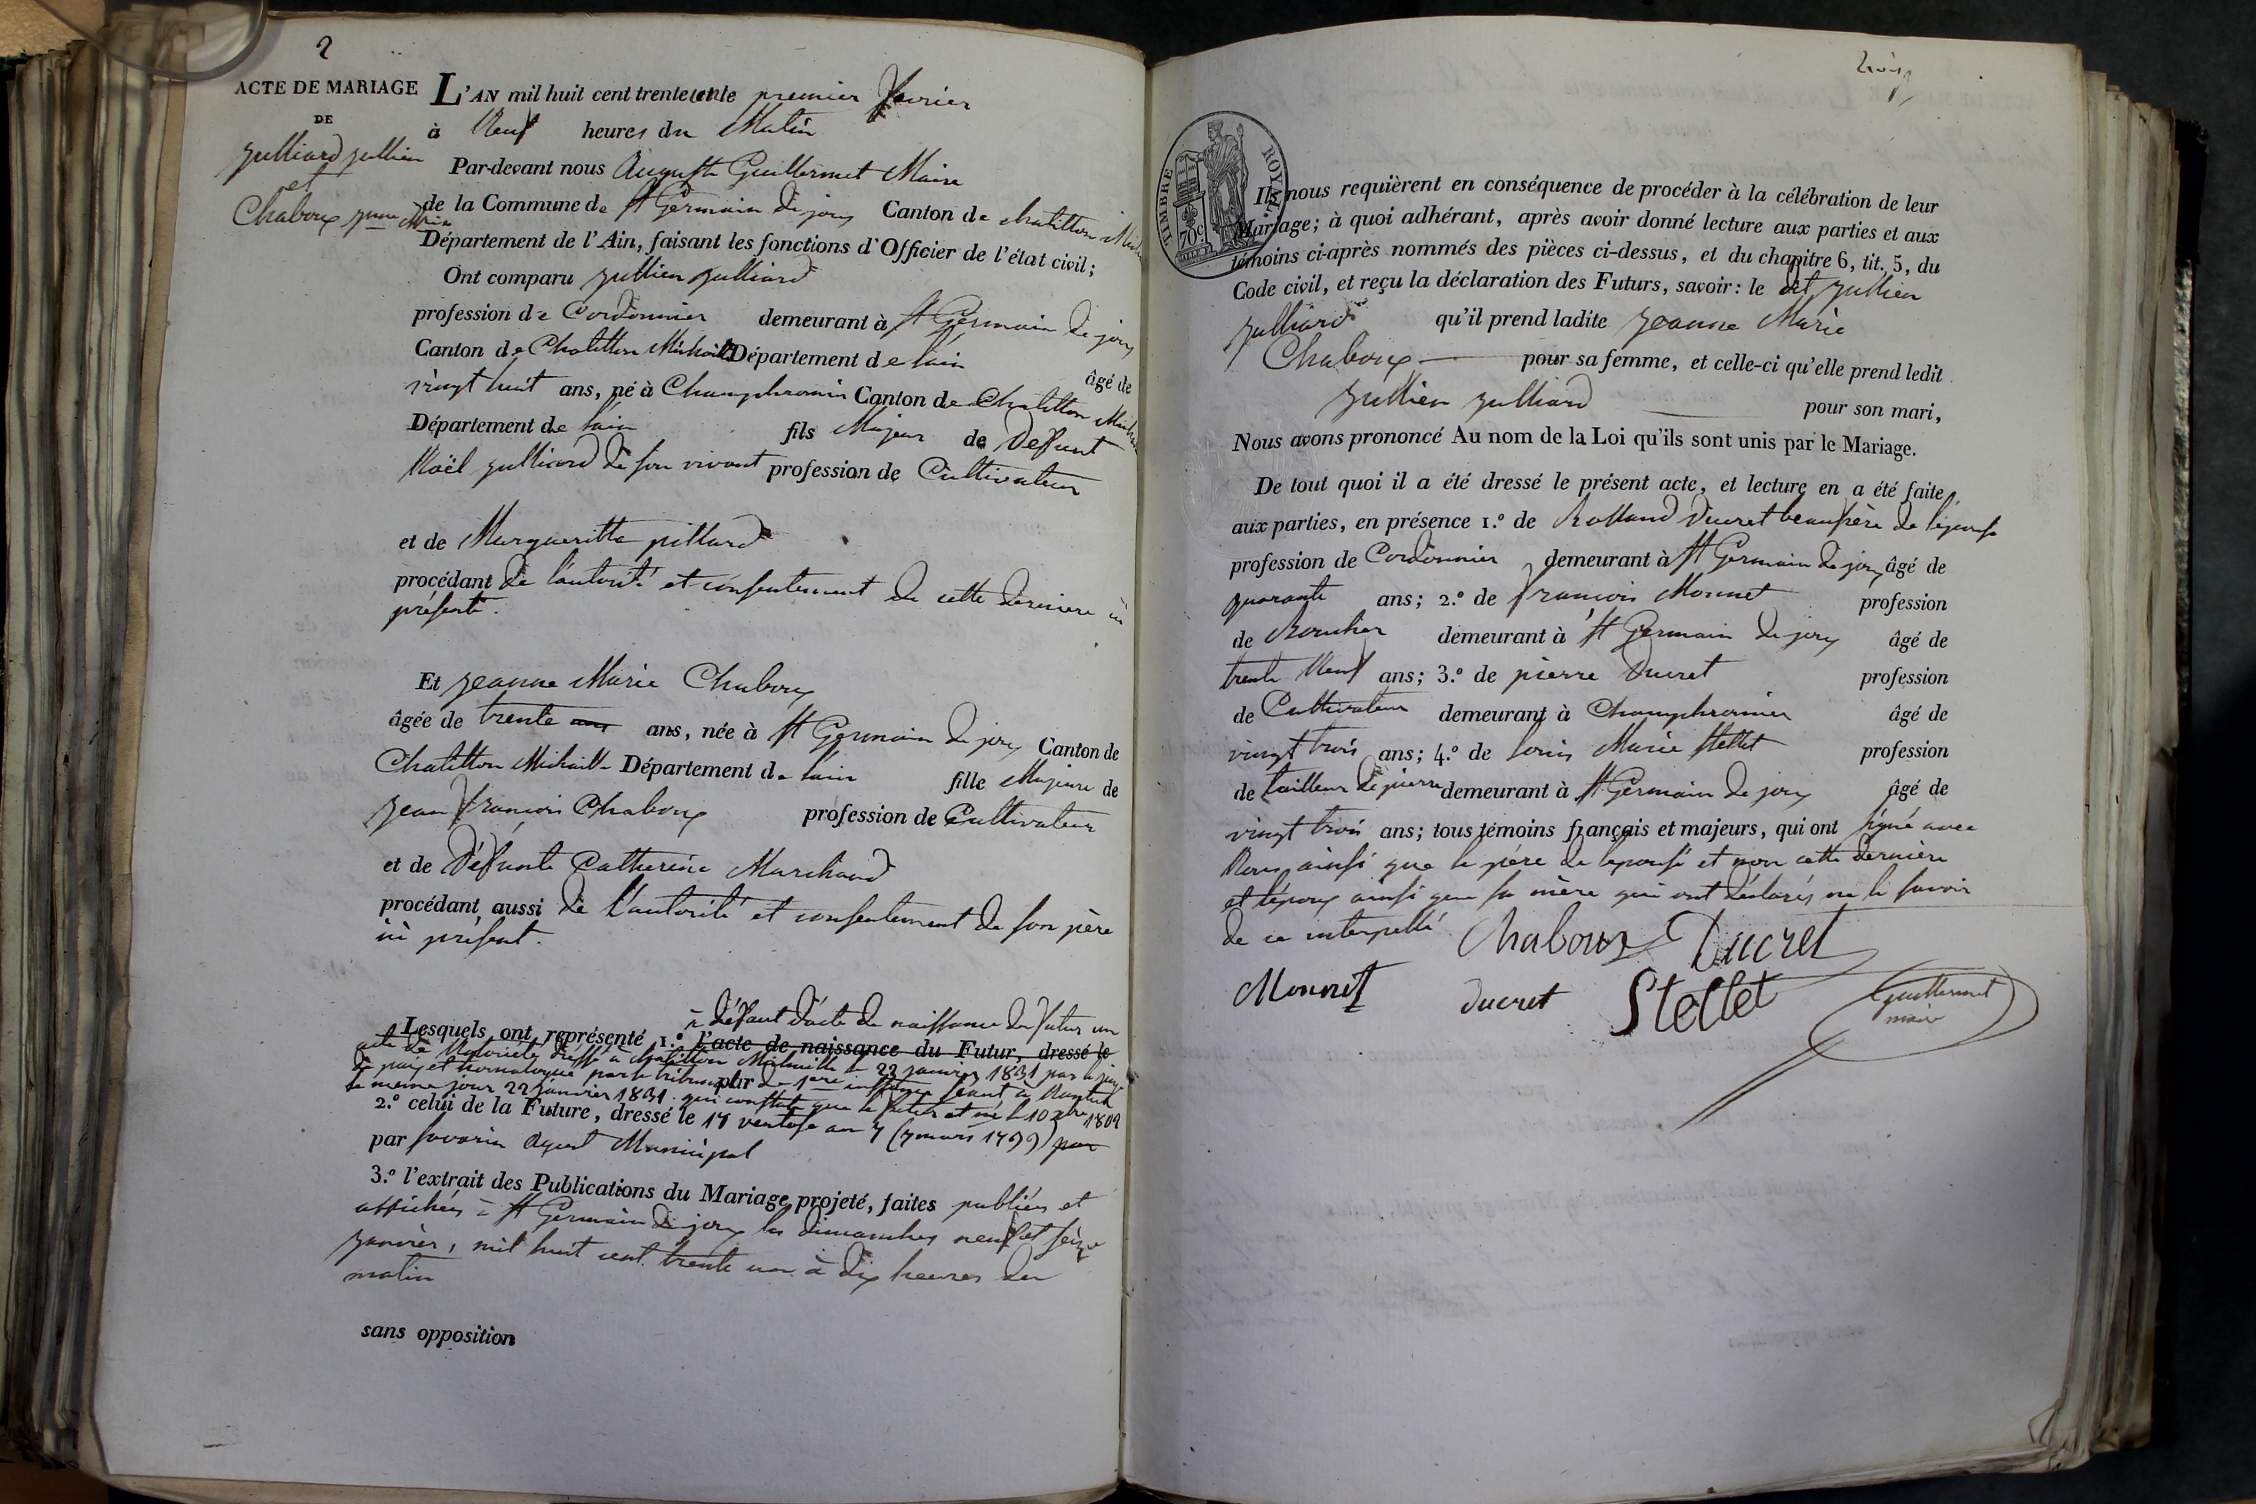 2
ACTE DE MARIAGE
DE
Julliard Jullien
et
Chaboux Jnne Marie
L'AN mil huit cent trente et un le premier fevrier
à Neuf heures du Matin
Par-devant nous Auguste Guillermet Maire
de la Commune de St Germain de joux Canton de chatillon
Département de l'Ain, faisant les fonctions d'Officier de l'état civil;
Ont comparu Jullien Julliard
profession de Cordonnier demeurant à St Germain de joux
Canton de Chatillon Michaille Département de lain âgé de
vingt huit ans, né à Champfromier Canton de Chatillon
Département de lain fils Majeur de Deffunt
Noël Julliard de son vivant profession de Cultivateur
et de Margueritte pillard
procédant de l'autorité et consentement de cette derniere ici
présente.
Et Jeanne Marie Chaboux
âgée de trente ans ans, née à St Germain de joux Canton de
Chatillon Michaille Département de lain fille Majeure de
Jean françois Chaboux profession de Cultivateur
et de Défunte Catherine Marchand
procédant aussi de l'autorité et consentement de son père
ici présent.
à défaut d'acte de naissance du futur un
Lesquels ont représenté 1.º l'acte de naissance du Futur, dressé le
acte de Notoriété dressé à chatillon Michaille le 22 janvier 1831 par le juge
de paix et homologué par le tribunal par de 1ere instance séant à Nantua
le meme jour 22 janvier 1831. qui constate que le futur est né le 10 xbre 1802
2.º celui de la Future, dressé le 17 ventose an 7 (7 mars 1799) par
par savarin agent Municipal
3.º l'extrait des Publications du Mariage projeté, faites publiées et
affichées à St Germain de joux les dimanches neuf et seize
janvier, mil huit cent trente un à dix heures du
matin
sans opposition
trois
TIMBRE ROYAL
70c
Ils nous requièrent en conséquence de procéder à la célébration de leur
Mariage; à quoi adhérant, après avoir donné lecture aux parties et aux
témoins ci-après nommés des pièces ci-dessus, et du chapitre 6, tit. 5, du
Code civil, et reçu la déclaration des Futurs, savoir: le dit Jullien
Julliard qu'il prend ladite Jeanne Marie
Chaboux pour sa femme, et celle-ci qu'elle prend ledit
Jullien Julliard pour son mari,
Nous avons prononcé Au nom de la Loi qu'ils sont unis par le Mariage.
De tout quoi il a été dressé le présent acte, et lecture en a été faite
aux parties, en présence 1.º de Rolland Ducret beaufrère de l'épouse
profession de Cordonnier demeurant à St Germain de joux âgé de
quarante ans; 2.º de francois Monnet profession
de demeurant à St Germain de joux âgé de
trente Neuf ans; 3.º de pierre Ducret profession
de Cultivateur demeurant à Champfromier âgé de
vingt trois ans; 4.º de louis Marie Stellet profession
de tailleur de pierre demeurant à St Germain de joux âgé de
vingt trois ans; tous témoins français et majeurs, qui ont signé avec
Nous ainsi que le père de lepouse et non cette dernière
et l'époux ainsi que sa mère qui ont déclarés ne le savoir
de ce interpellé
Chaboux Ducret
Monnet ducret Stellet Guillermet
maire